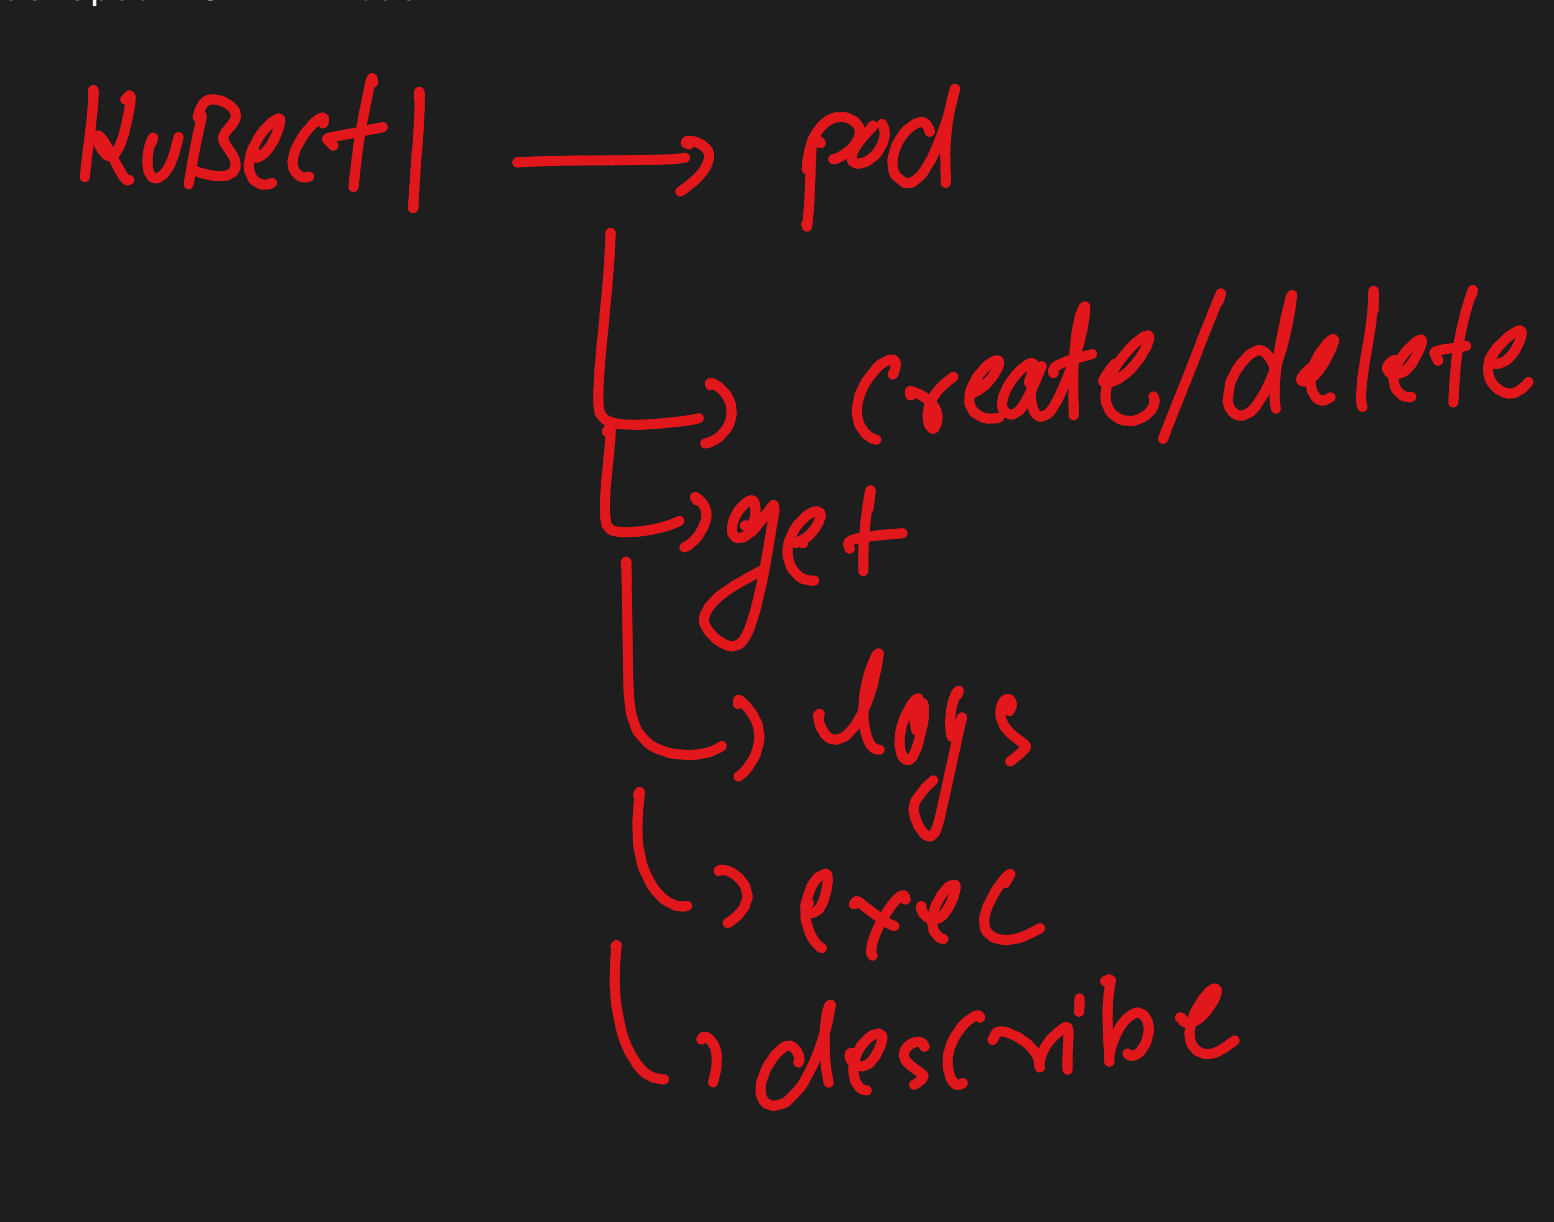 KuBectl → pod
create/delete
get
logs
exec
describe